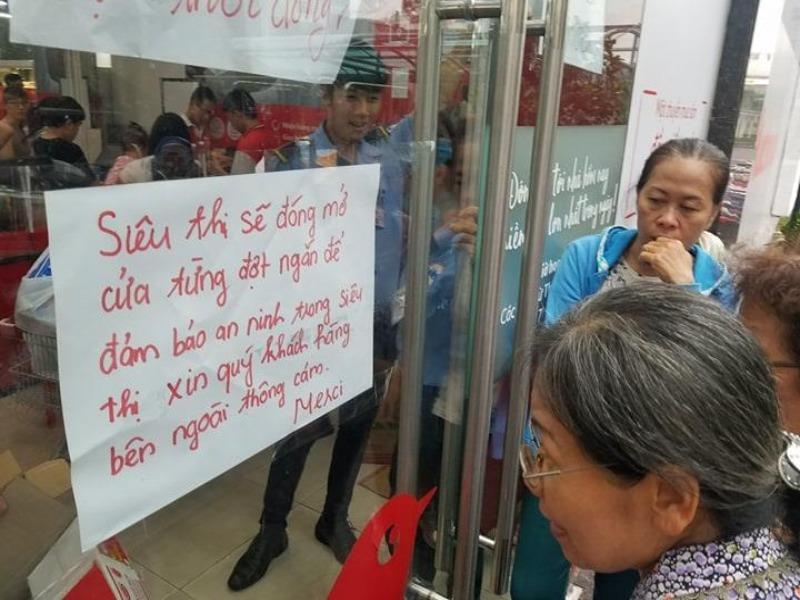 Siêu thị sẽ đóng mở
cửa từng đợt ngắn để
đảm bảo an ninh trong siêu
thị xin quý khách hàng
bên ngoài thông cảm.
Merci
tới nhà hôm nay
lớn nhất trong ngày!
Các